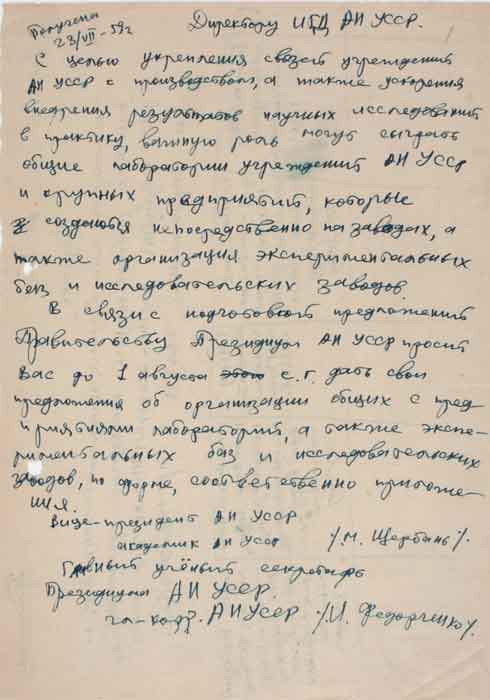 Получена
23/VII - 59г
Директору ИГД АН УССР.
С целью укрепления связей учреждений
АН УССР с производством, а также ускорения
внедрения результатов научных исследований
в практику, важную роль могут сыграть
общие лаборатории учреждений АН УССР
и крупных предприятий, которые
создаются непосредственно на заводах, а
также организация экспериментальных
баз и исследовательских заводов.
В связи с подготовкой предложений
Правительству Президиум АН УССР просит
Вас до 1 августа с.г. дать свои
предложения об организации общих с пред-
приятиями лабораторий, а также экспе-
риментальных баз и исследовательских
заводов, по форме, соответственно приложе-
ния.
Вице-президент АН УССР
академик АН УССР /М. Щербань/.
Главный учёный секретарь
Президиума АН УССР.
АН УССР /И. Федорченко/.